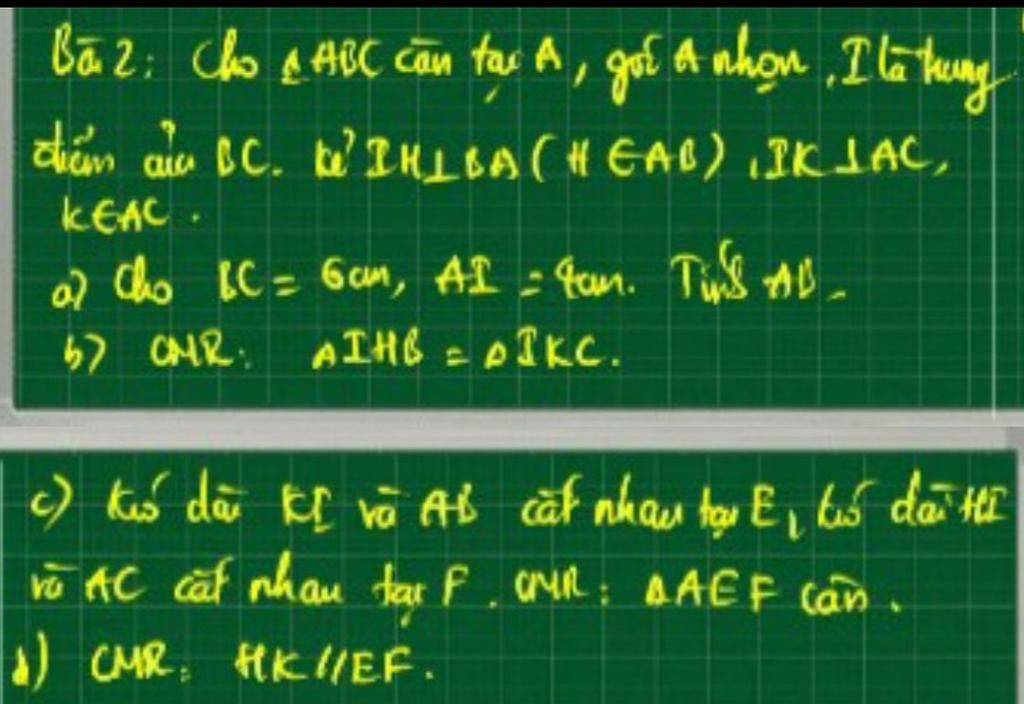 Bài 2: Cho △ABC cân tại A, góc A nhọn, I là trung
điểm của BC. Kẻ IH⊥BA (H∈AB), IK⊥AC,
K∈AC.
a) Cho BC = 6cm, AI = 4cm. Tính AB.
b) CMR: △IHB = △IKC.
c) Kéo dài KI và AB cắt nhau tại E, kéo dài HI
và AC cắt nhau tại F. CMR: △AEF cân.
d) CMR: HK//EF.